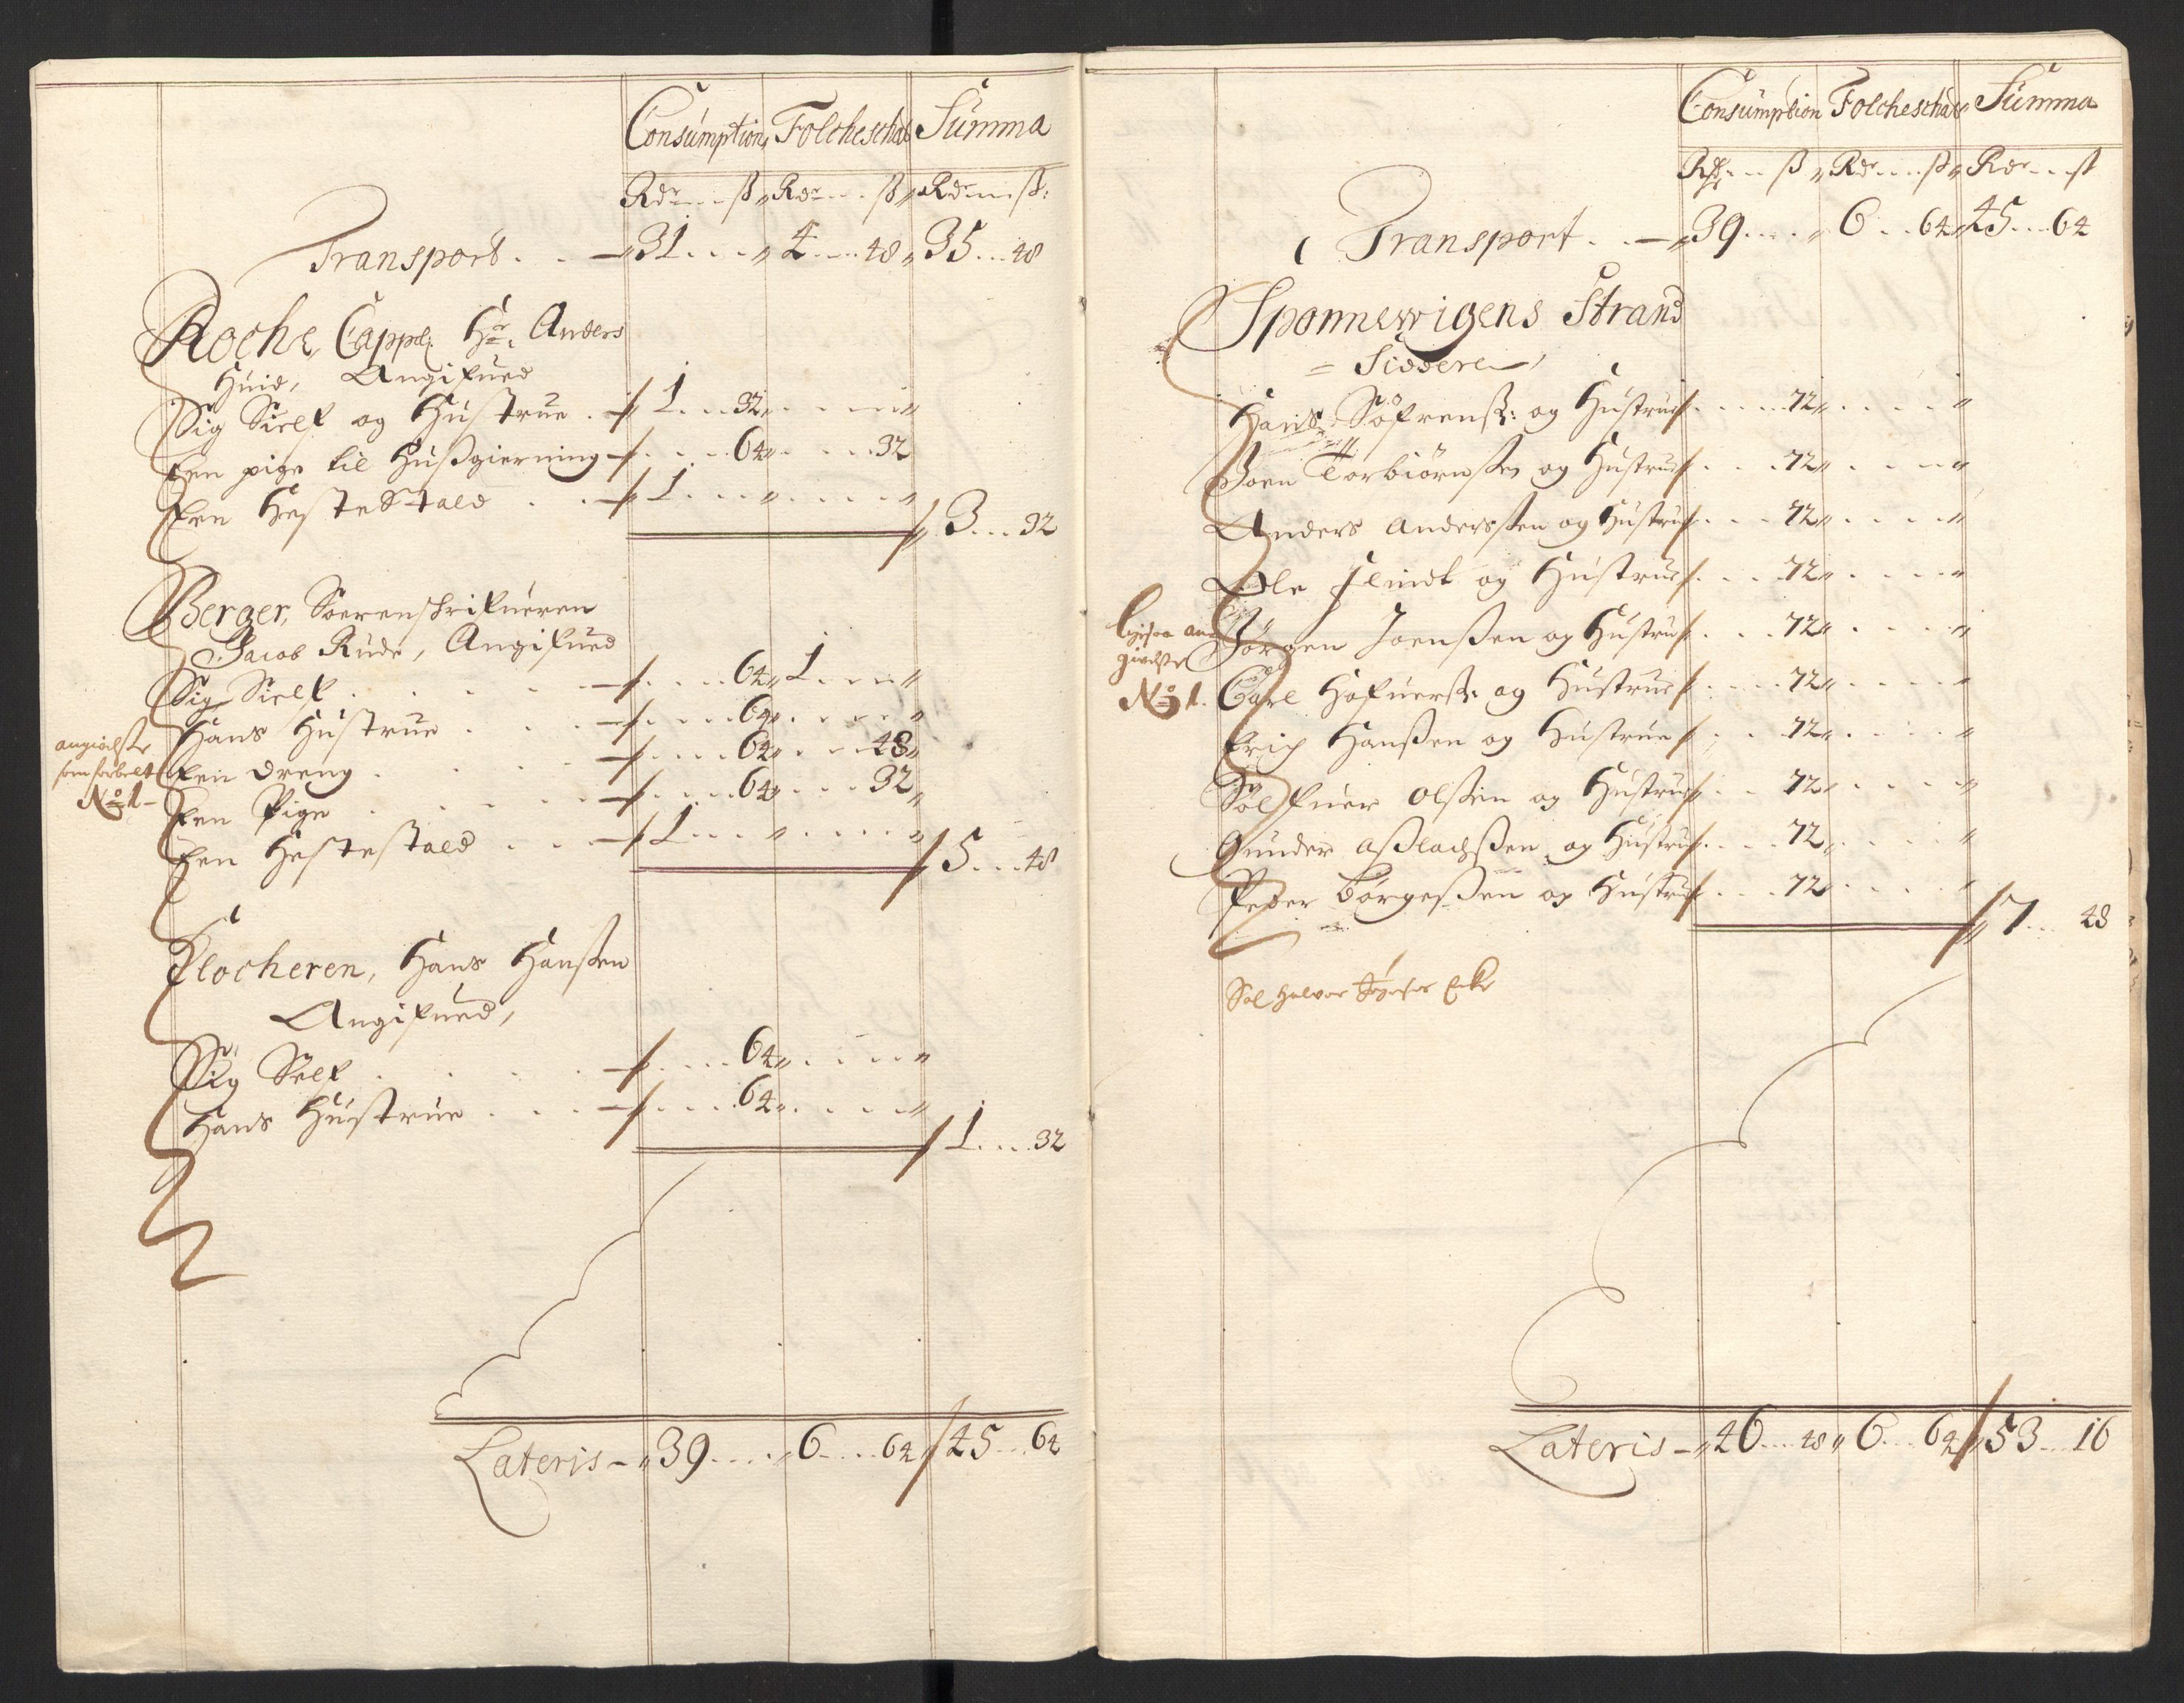 Consumption Folcheschat Summa
Rdr ß Rdr ß Rdr ß
Transport 31 4 48 35 48
Roche, Cappel: Hr. Anders
Huid, Angifued
Sig Sielf og Hustrue 1 32
Een pige til Hußgierning 64 32
Een HesteStald 1
3 32
Berger, Soerenschrifueren
Jacob Rude, Angifued
Sig Sielf 64 1
Hans Hustrue 64
Een Dreng 64 48
angivelse
N: 1
Een Pige 64 32
Een Hestestald 1
5 48
Clocheren, Hans Hanßen
Angifued,
Sig Self 64
Hans Hustrue 64
1 32
Lateris 39 6 64 45 64
Consumption Folcheschat Summa
Rdr ß Rdr ß Rdr ß
Transport 39 6 64 45 64
Sponnewigens Strand
Siddere
Hans Söfrenß: og Hustrue 72
Joen Torbiörnßen og Hustrue 72
Anders Andersßen og Hustrue 72
Ole Flindt og Hustrue 72
ligesaa an
givelse
N: 1.
Jörgen Joenßen og Hustrue 72
Carl Hofuerß: og Hustrue 72
Erich Hanßen og Hustrue 72
Sölfuer Olßen og Hustrue 72
Gunder Aßlachßen og Hustrue 72
Peder Börgeßen og Hustrue 72
7 48
Sal Halvor Enke
Lateris 46 48 6 64 53 16